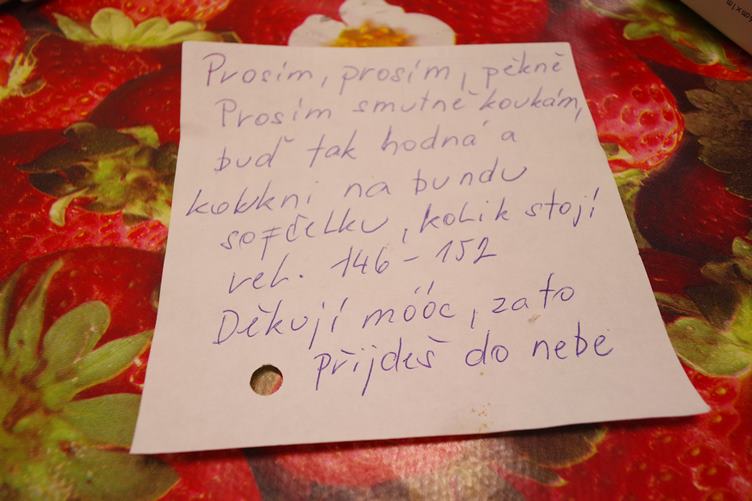 Prosím, prosím, pěkně
Prosím smutně koukám,
buď tak hodná a
koukni na bundu
softčelku, kolik stojí
vel. 146-152
Děkuji móóc, za to
přijdeš do nebe